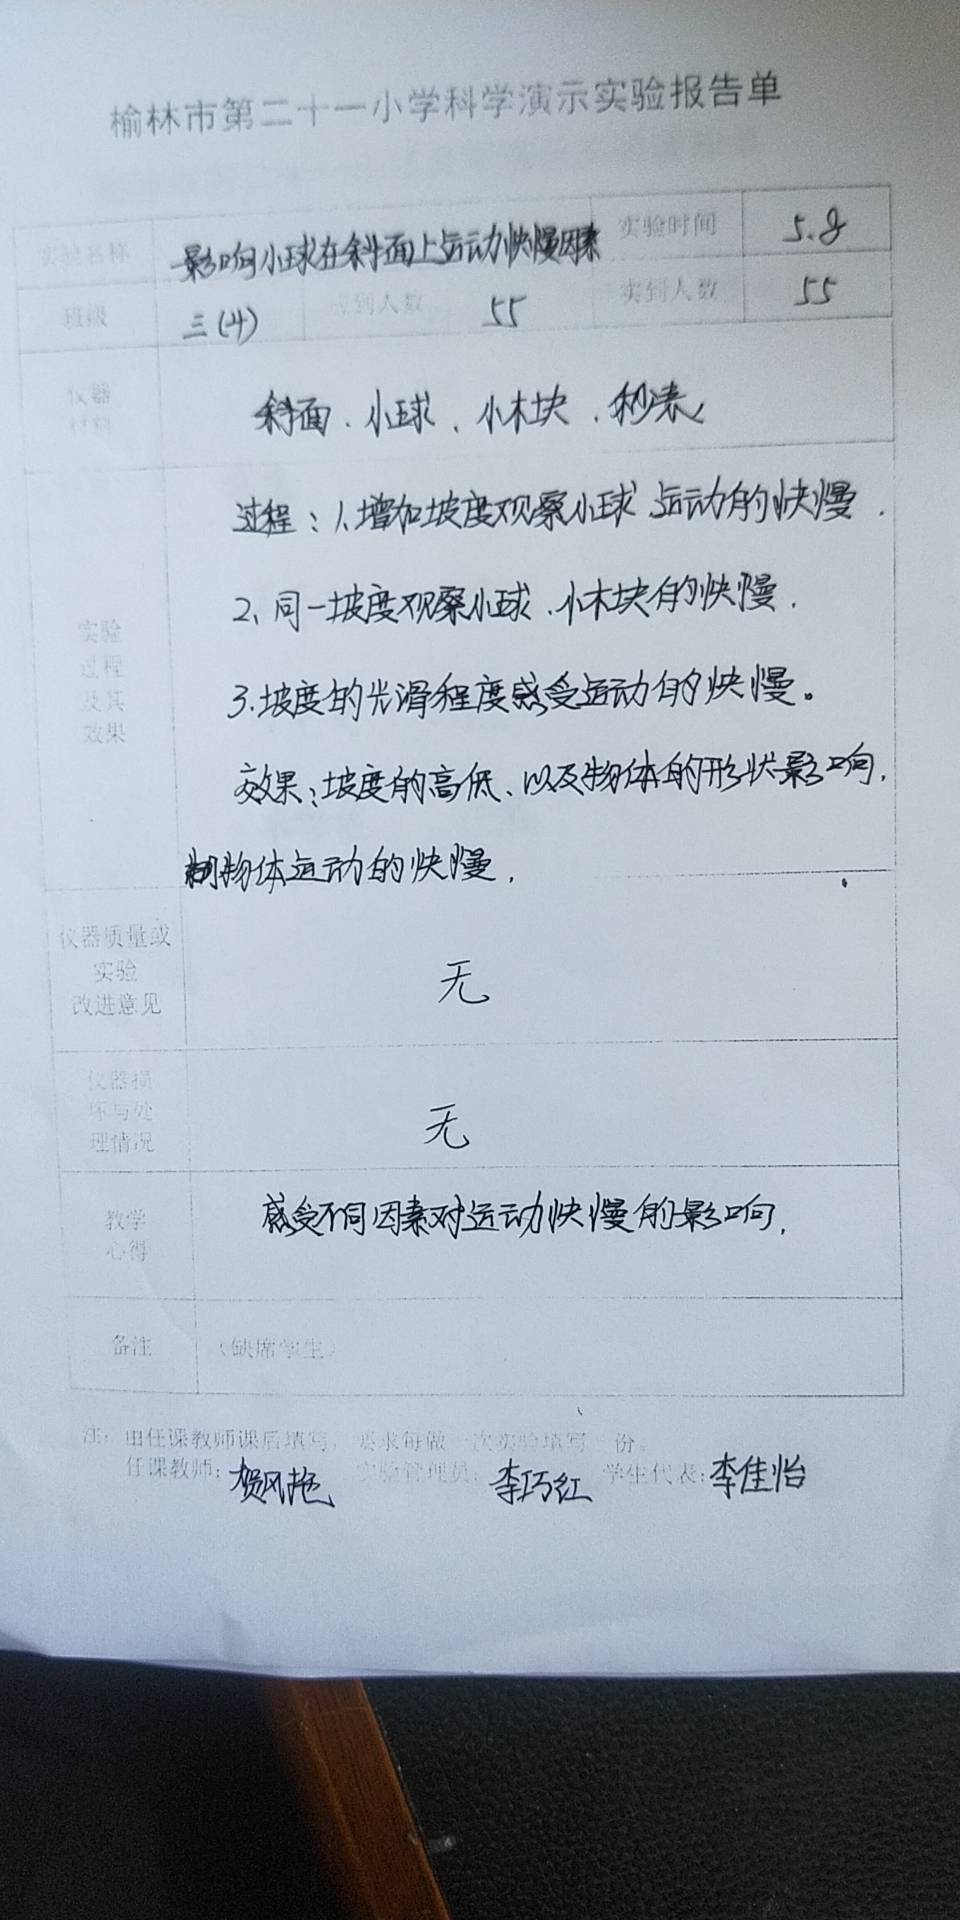 榆林市第二十一小学科学演示实验报告单
实验名称 影响小球在斜面上运动快慢因素 实验时间 5.8
班级 三(4) 应到人数 55 实到人数 55
仪器
材料
斜面、小球、小木块、秒表
过程:1、增加坡度观察小球运动的快慢.
2、同一坡度观察小球、小木块的快慢.
3.坡度的光滑程度感受运动的快慢。
效果:坡度的高低、以及物体的形状影响,
物体运动的快慢.
实验
过程
及其
效果
仪器质量或
实验
改进意见
无
仪器损
坏与处
理情况
无
教学
心得
感受不同因素对运动快慢的影响.
备注 (缺席学生)
注:由任课教师课后填写,要求每做一次实验填写一份。
任课教师:贺风艳 实验管理员:李巧红 学生代表:李佳怡